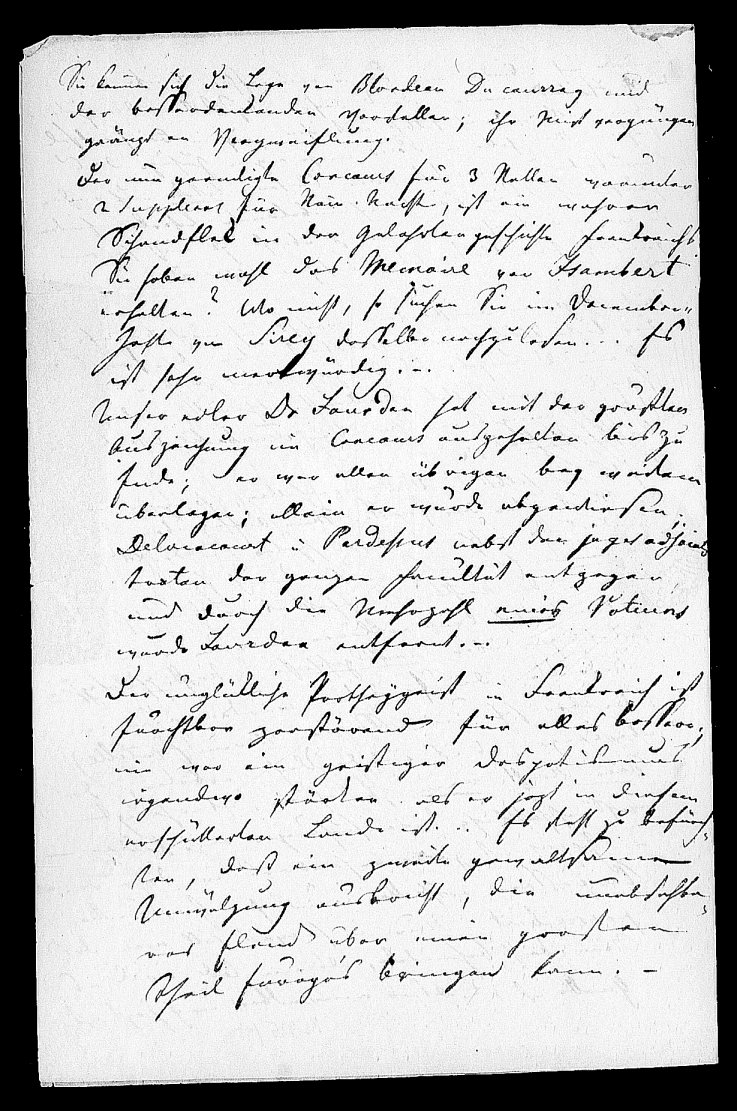 Sie kennen sich die Lage von Blondeau Ducaurroy und
der besserdenkenden vorstellen; ihr Mißvergnügen
gränzt an Verzweiflung.
Der nun geendigte Concours für 3 Stellen worunter
2 Suppleant für Röm. Recht, ist ein wahrer
Schandflek in der Gelehrtengeschichte Frankreichs
Sie haben wohl das Memoire von Isambert
erhalten? Wo nicht, so suchen Sie im December-
Hefte von Sirey dasselbe nachzulesen... Es
ist sehr merkwürdig.-.
Unser edler Dr Jourdan hat mit der größten
Auszeichnung im Concours ausgehalten bis zu
Ende; er war allen übrigen bey weitem
überlegen; allein er wurde abgewiesen.
Delvincourt u Pardessus nebst den juges adjoints
traten der ganzen Facultät entgegen,
und durch die Mehrzahl eines Votums
wurde Jourdan entfernt.-.
Der unglükliche Partheygeist in Frankreich ist
furchtbar zerstörend für alles bessere;
nie war ein geistiger Despotismus
irgendwo stärker als er jezt in diesem
erschütterten Lande ist... Es steht zu befürch-
ten, daß ein zweite gewaltsame
Umwälzung ausbricht, die unabsehba-
res Elend über einen grossen
Theil Europa's bringen kann.-